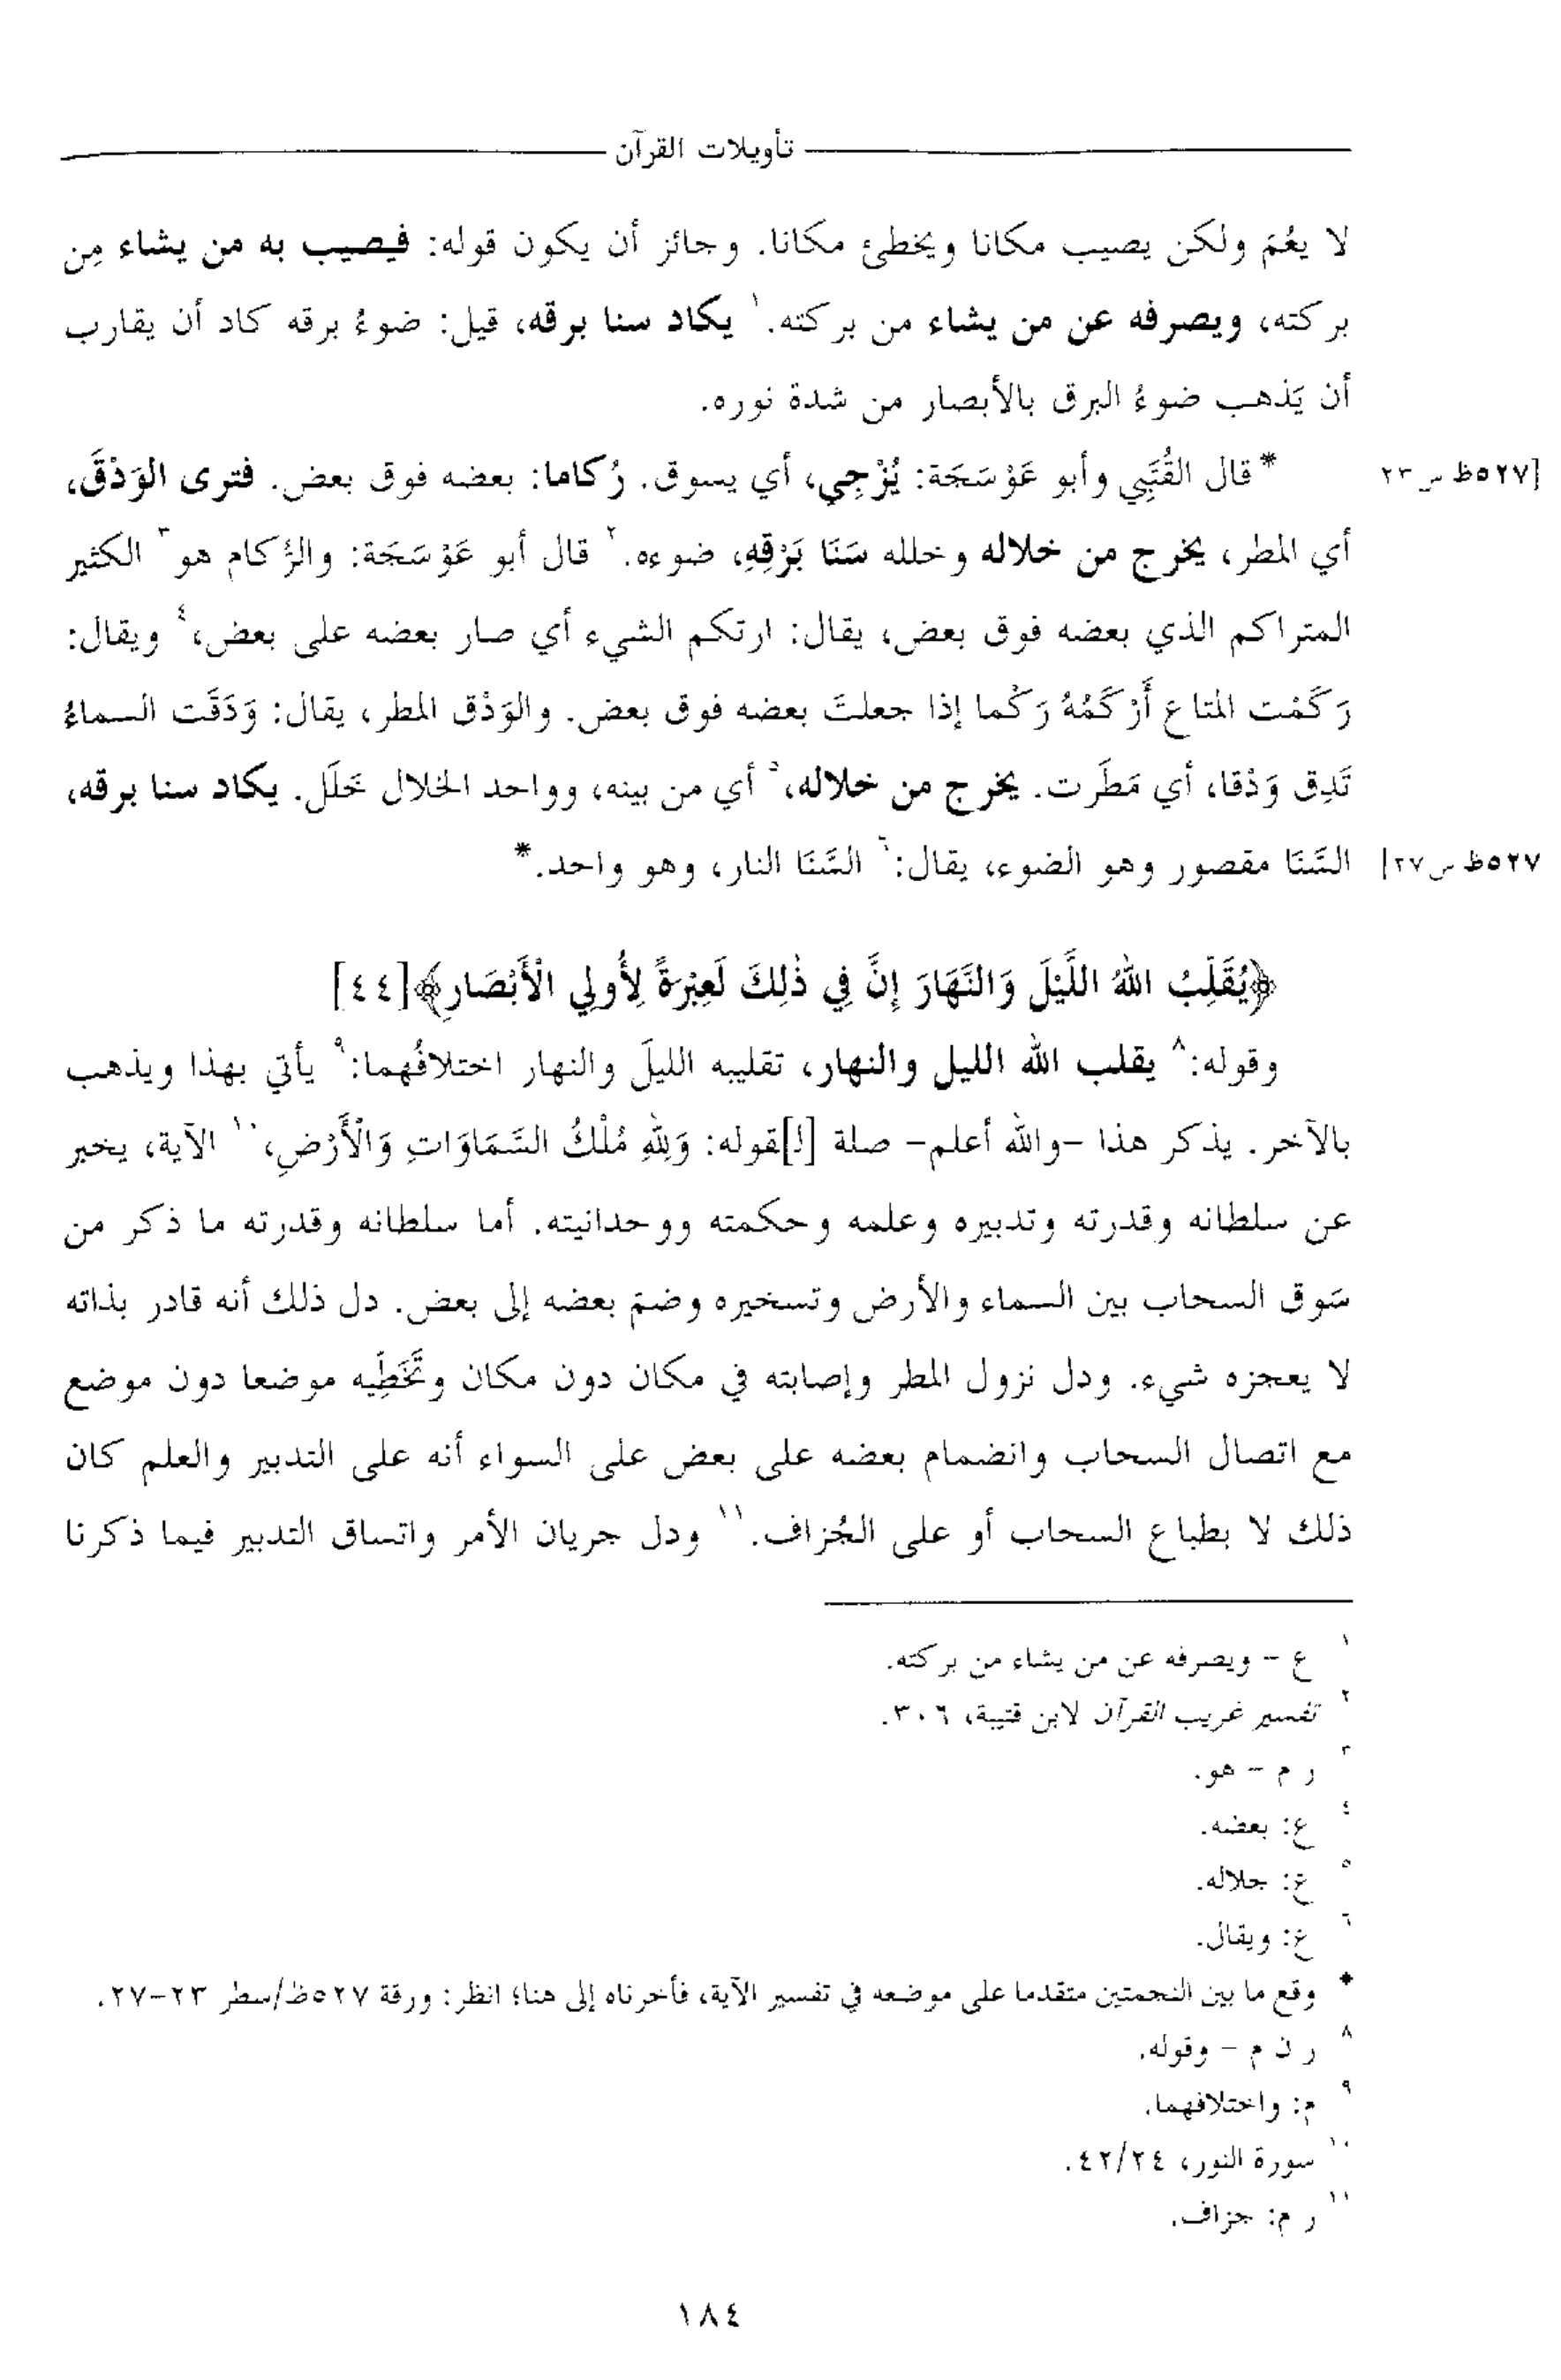 تأويلات القرآن
لا يعُمّ ولكن يصيب مكانا ويخطئ مكانا. وجائز أن يكون قوله: فيصيب به من يشاء مِن
بركته، ويصرفه عن من يشاء من بركته.١ يكاد سنا برقه، قيل: ضوءُ برقه كاد أن يقارب
أن يَذهب ضوءُ البرق بالأبصار من شدة نوره.
[٥٢٧ظ س ٢٣
*قال القُتَبِي وأبو عَوْسَجَة: يُزْجِي، أي يسوق. رُكاما: بعضه فوق بعض. فترى الوَدْقَ،
أي المطر، يخرج من خلاله وخلله سَنَا بَرْقِهِ، ضوءه.٢ قال أبو عَوْسَجَة: والرُّكام هو٣ الكثير
المتراكم الذي بعضه فوق بعض، يقال: ارتكم الشيء أي صار بعضه على بعض،٤ ويقال:
رَكَمْت المتاع أَرْكَمُهُ رَكْما إذا جعلتَ بعضه فوق بعض. والوَدْق المطر، يقال: وَدَقَت السماءُ
تَدِق وَدْقا، أي مَطَرت. يخرج من خلاله،٥ أي من بينه، وواحد الخلال خَلَل. يكاد سنا برقه،
السَّنَا مقصور وهو الضوء، يقال:٦ السَّنَا النار، وهو واحد.*
٥٢٧ظ س ٢٧]
﴿يُقَلِّبُ اللهُ اللَّيْلَ وَالنَّهَارَ إِنَّ فِي ذٰلِكَ لَعِبْرَةً لِأُولِي الْأَبْصَارِ﴾[٤٤]
وقوله:٨ يقلب الله الليل والنهار، تقليبه الليلَ والنهار اختلافُهما:٩ يأتي بهذا ويذهب
بالآخر. يذكر هذا -والله أعلم- صلة [لـ]قوله: وَلِلّٰهِ مُلْكُ السَّمَاوَاتِ وَالْأَرْضِ،١٠ الآية، يخبر
عن سلطانه وقدرته وتدبيره وعلمه وحكمته ووحدانيته. أما سلطانه وقدرته ما ذكر من
سَوق السحاب بين السماء والأرض وتسخيره وضمّ بعضه إلى بعض. دل ذلك أنه قادر بذاته
لا يعجزه شيء. ودل نزول المطر وإصابته في مكان دون مكان وتَخَطِّيه موضعا دون موضع
مع اتصال السحاب وانضمام بعضه على بعض على السواء أنه على التدبير والعلم كان
ذلك لا بطباع السحاب أو على الجُزاف.١١ ودل جريان الأمر واتساق التدبير فيما ذكرنا
١ ع - ويصرفه عن من يشاء من بركته.
٢ تفسير غريب القرآن لابن قتيبة، ٣٠٦.
٣ ر م - هو.
٤ ع: بعضه.
٥ ع: جلاله.
٦ ع: ويقال.
* وقع ما بين النجمتين متقدما على موضعه في تفسير الآية، فأخرناه إلى هنا؛ انظر: ورقة ٥٢٧ظ/سطر ٢٣-٢٧.
٨ ر ن م - وقوله.
٩ م: واختلافهما.
١٠ سورة النور، ٤٢/٢٤.
١١ ر م: جزاف.
١٨٤